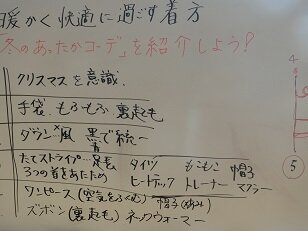 暖かく快適に過ごす着方
「冬のあったかコーデ」を紹介しよう?
クリスマスを意識
手袋 もふもふ 裏起毛
ダウン 風 黒で統一
青
たてストライプ… 足も タイツ もこもこ 帽子
3つの首をあたため ヒートテック トレーナー マフラー
ワンピース(空気をふくむ) 帽子
ズボン(裏起も) ネックウォーマー
4
5